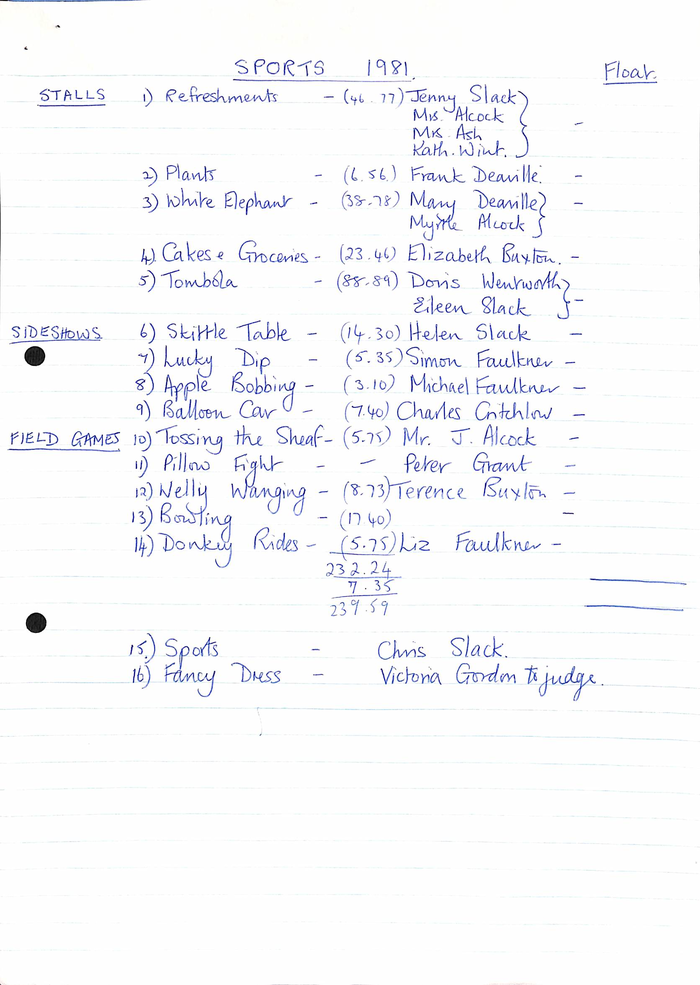 SPORTS 1981.
Float.
STALLS 1) Refreshments - (46.77) Jenny Slack
Mrs. Alcock
Mrs. Ash
Kath. Wint. -
2) Plants - (6.56) Frank Deaville. -
3) White Elephant - (38.78) Mary Deaville -
Myrtle Alcock
4) Cakes & Groceries - (23.46) Elizabeth Buxton. -
5) Tombola - (88.89) Doris Wentworth
Eileen Slack -
SIDESHOWS 6) Skittle Table - (14.30) Helen Slack -
7) Lucky Dip - (5.35) Simon Faulkner -
8) Apple Bobbing - (3.10) Michael Faulkner -
9) Balloon Car - (7.40) Charles Critchlow -
FIELD GAMES 10) Tossing the Sheaf - (5.75) Mr. J. Alcock -
11) Pillow Fight - - Peter Grant -
12) Welly Wanging - (8.73) Terence Buxton -
13) Bowling - (17 40) -
14) Donkey Rides - (5.75) Liz Faulkner -
232.24
7.35
239.59
15.) Sports - Chris Slack.
16) Fancy Dress - Victoria Gordon to judge.